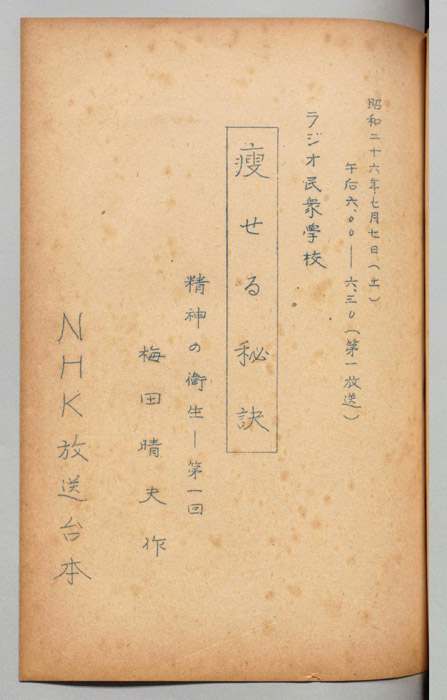 昭和二十六年七月七日（土）
午后六.〇〇―六.三〇（第一放送）
ラジオ民衆學校
痩せる秘訣
精神の衛生―第一回
梅田晴夫作
NHK放送台本